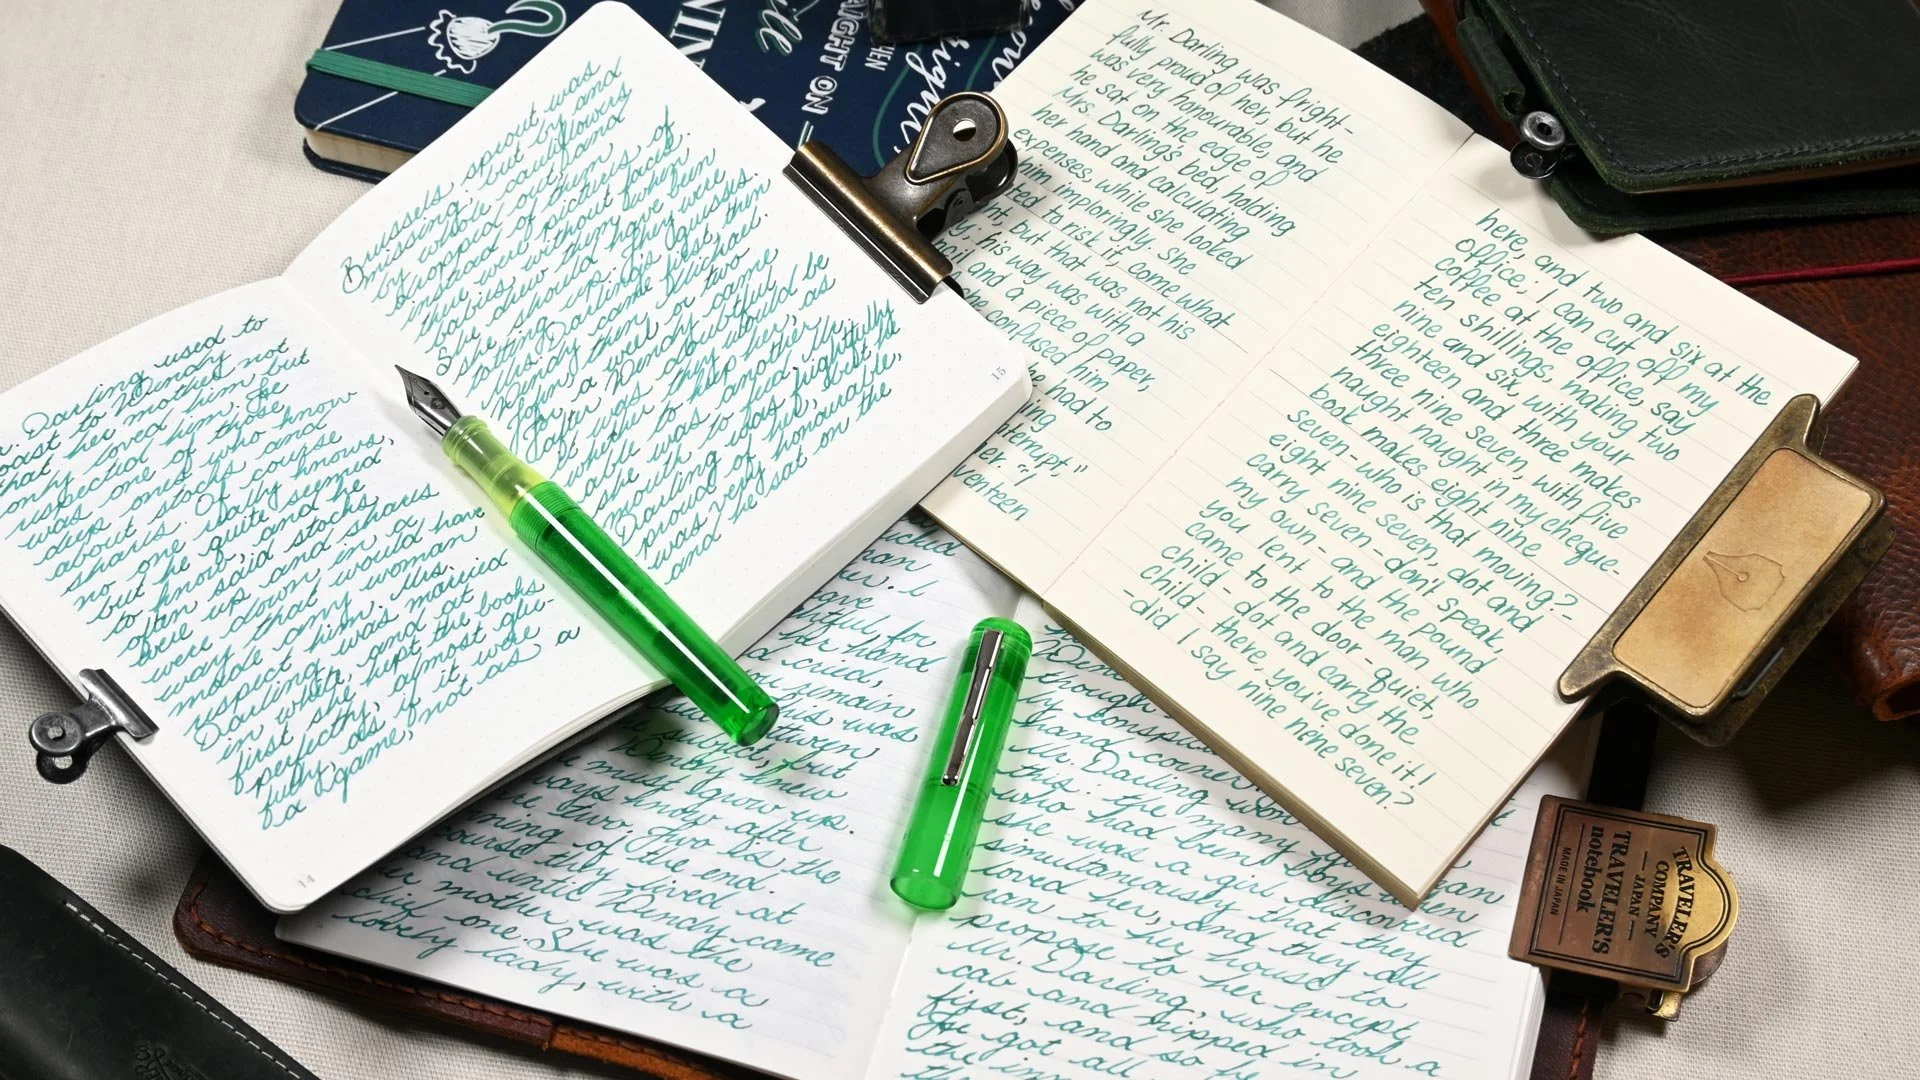 r. Darling used to
boast to Wendy
that her mother not
only loved him but
respected him. He
was one of those
deep ones who know
about stocks and
shares. Of course
no one really knows,
but he quite seemed
to know, and he
often said stocks
were up and shares
were down in a
way that would have
made any woman
respect him. Mrs.
Darling was married
in white, and at
first she kept the books
perfectly, almost glee-
fully, as if it were
a game, not as a
14
Brussels sprout was
missing, but by and
by whole cauliflowers
dropped out, and
instead of them
there were pictures of
babies without faces.
She drew them when
she should have been
totting up. They were
Mrs. Darling's guesses.
Wendy came first, then
John, then Michael.
For a week or two
after Wendy came
it was doubtful
whether they would be
able to keep her, as
she was another
mouth to feed. Mr.
Darling was frightfully
proud of her, but he
was very honourable,
and he sat on the
15
Mr. Darling was fright-
fully proud of her, but he
was very honourable, and
he sat on the edge of
Mrs. Darling's bed, holding
her hand and calculating
expenses, while she looked
him imploringly. She
ted to risk it, come what
ht, but that was not his
y; his way was with a
cil and a piece of paper,
she confused him
he had to
ing
nterrupt,"
er. "I
venteen
here, and two and six at the
office; I can cut off my
coffee at the office, say
ten shillings, making two
nine and six, with your
eighteen and three makes
three nine seven, with five
naught naught in my cheque-
book makes eight nine
seven-who is that moving?-
eight nine seven, dot and
carry seven-don't speak,
my own-and the pound
you lent to the man who
came to the door-quiet,
child-dot and carry the
child-there, you've done it!
-did I say nine nine seven?
for
her hand
cried,
remain
this was
between
subject, but
Wendy knew
must grow up.
always know after
two. Two is the
of the end.
course they lived at
and until Wendy came
mother was the
chief one. She was a
lovely lady, with a
though
conspic
hand corner.
Mr. Darling won
this: the many
who had been boys when
she was a girl discovered
simultaneously that they
loved her, and they all
to her house to
propose to her except
Mr. Darling, who took a
cab and nipped in
first, and so he
He got all
the inn
TRAVELER'S
COMPANY
JAPAN
TRAVELER'S
notebook
MADE IN JAPAN